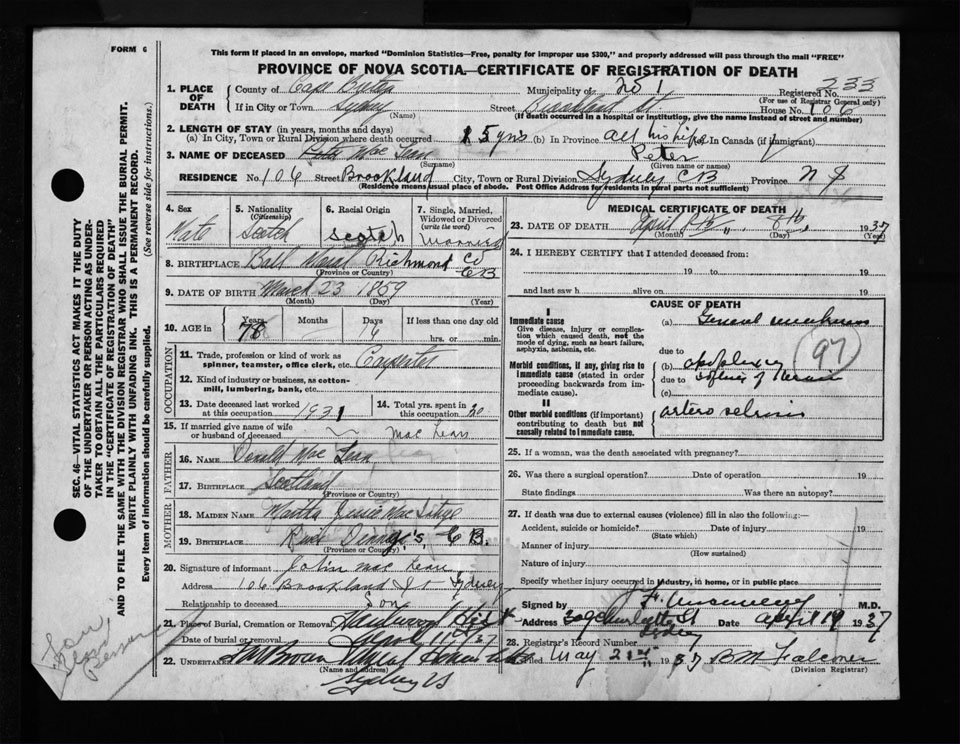 FORM 6
This form if placed in an envelope, marked "Dominion Statistics—Free, penalty for improper use $300," and properly addressed will pass through the mail "FREE"
PROVINCE OF NOVA SCOTIA—CERTIFICATE OF REGISTRATION OF DEATH
1. PLACE OF DEATH
County of Cape Breton Municipality of No 1 Registered No. 333
(For use of Registrar General only)
If in City or Town Sydney Street Brookland St. House No. 106
(Name) (If death occurred in a hospital or institution, give the name instead of street and number)
2. LENGTH OF STAY (in years, months and days)
(a) In City, Town or Rural Division where death occurred 15 yrs (b) In Province all his life (c) in Canada (if immigrant)
3. NAME OF DECEASED Mac Lean Peter
(Surname) (Given name or names)
RESIDENCE No. 106 Street Brookland City, Town or Rural Division Sydney CB Province N S
(Residence means usual place of abode. Post Office Address for residents in rural parts not sufficient)
4. Sex
5. Nationality (Citizenship) Scotch
6. Racial Origin Scotch
7. Single, Married, Widowed or Divorced (write the word)
8. BIRTHPLACE Richmond Co CB
(Province or Country)
9. DATE OF BIRTH March 23 1859
(Month) (Day) (Year)
10. AGE in Years 78 Months Days 16 If less than one day old hrs. or min.
OCCUPATION
11. Trade, profession or kind of work as spinner, teamster, office clerk, etc. Carpenter
12. Kind of industry or business, as cotton-mill, lumbering, bank, etc.
13. Date deceased last worked at this occupation 1931
14. Total yrs. spent in this occupation 20
15. If married give name of wife or husband of deceased Mac Lean
FATHER
16. NAME Donald Mac Lean
17. BIRTHPLACE Scotland
(Province or Country)
MOTHER
18. MAIDEN NAME
19. BIRTHPLACE River Dennys, C B.
(Province or Country)
20. Signature of informant John Mac Lean
Address 106 Brookland St Sydney
Relationship to deceased Son
21. Place of Burial, Cremation or Removal
Date of burial or removal
22. UNDERTAKER
(Name and address)
Sydney NS
MEDICAL CERTIFICATE OF DEATH
23. DATE OF DEATH April 8th 1937
(Month) (Day) (Year)
24. I HEREBY CERTIFY that I attended deceased from:
19 to 19
and last saw h alive on 19
CAUSE OF DEATH
I
Immediate cause
Give disease, injury, or complication which caused death, not the mode of dying, such as heart failure, asphyxia, asthenia, etc.
(a) General
due to
Morbid conditions, if any, giving rise to immediate cause (stated in order proceeding backwards from immediate cause).
(b) apoplexy
due to
(c)
97
II
Other morbid conditions (if important) contributing to death but not causally related to immediate cause.
25. If a woman, was the death associated with pregnancy?
26. Was there a surgical operation? Date of operation 19
State findings Was there an autopsy?
27. If death was due to external causes (violence) fill in also the following:—
Accident, suicide or homicide? Date of injury 19
(State which)
Manner of injury
(How sustained)
Nature of injury
Specify whether injury occurred in industry, in home, or in public place
Signed by M.D.
Address 309 Charlotte St Sydney Date April 19 1937
28. Registrar's Record No.
Filed May 1937
(Division Registrar)
SEC. 46—VITAL STATISTICS ACT MAKES IT THE DUTY
OF THE UNDERTAKER OR PERSON ACTING AS UNDER-
TAKER TO OBTAIN ALL THE PARTICULARS REQUIRED
IN THE "CERTIFICATE OF REGISTRATION OF DEATH"
AND TO FILE THE SAME WITH THE DIVISION REGISTRAR WHO SHALL ISSUE THE BURIAL PERMIT.
WRITE PLAINLY WITH UNFADING INK. THIS IS A PERMANENT RECORD.
Every item of information should be carefully supplied. (See reverse side for instructions.)